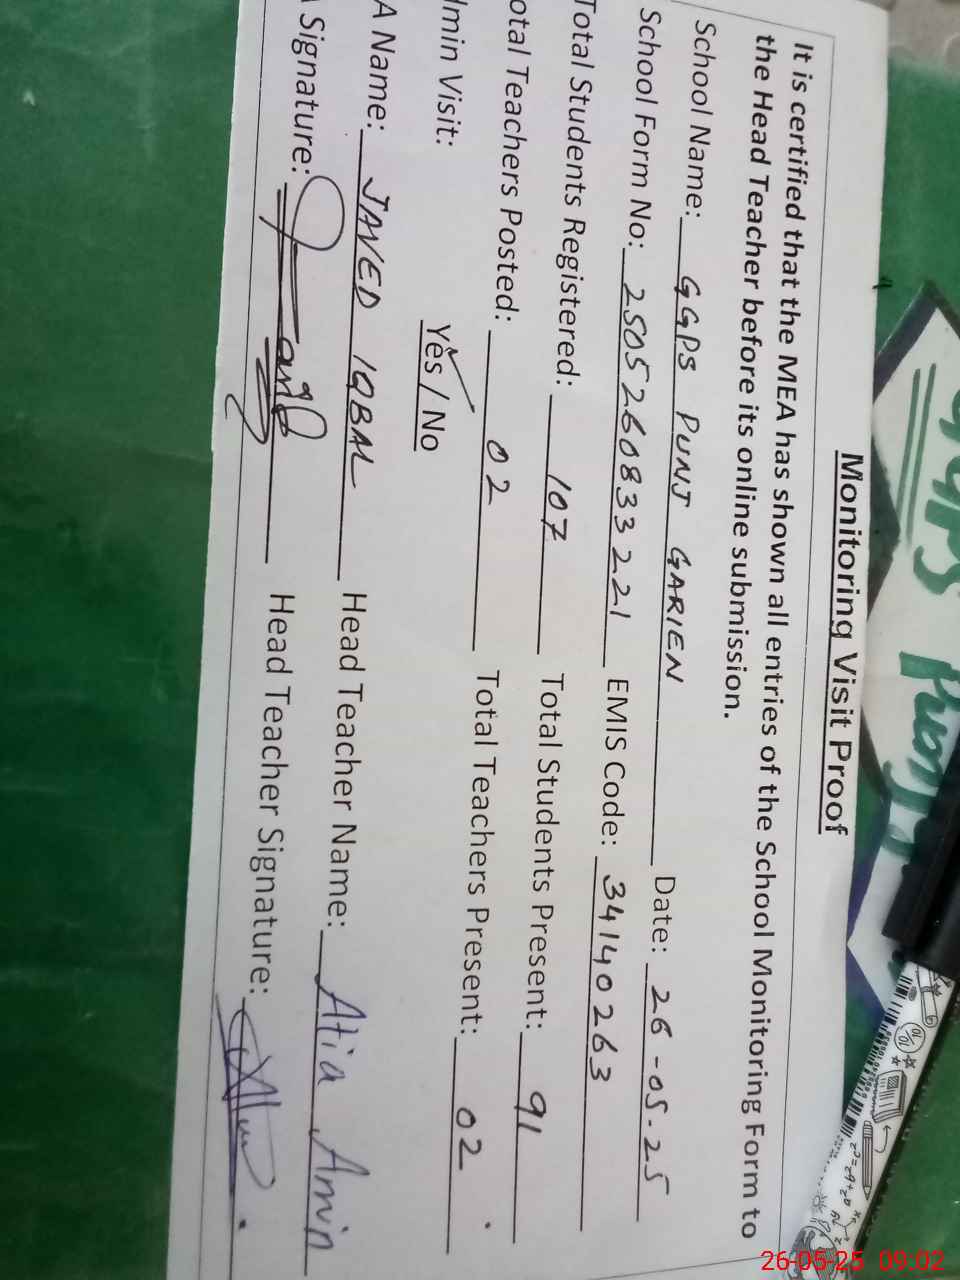 Monitoring Visit Proof
It is certified that the MEA has shown all entries of the School Monitoring Form to
the Head Teacher before its online submission.
School Name: GGPS PUNJ GARIEN Date: 26-05-25
School Form No: 2505260833221 EMIS Code: 34140263
Total Students Registered: 107 Total Students Present: 91
otal Teachers Posted: 02 Total Teachers Present: 02
dmin Visit: Yes / No
A Name: JAVED IQBAL Head Teacher Name: Atia Amin
Signature: Head Teacher Signature:
GGPS
26-05-25 09:02